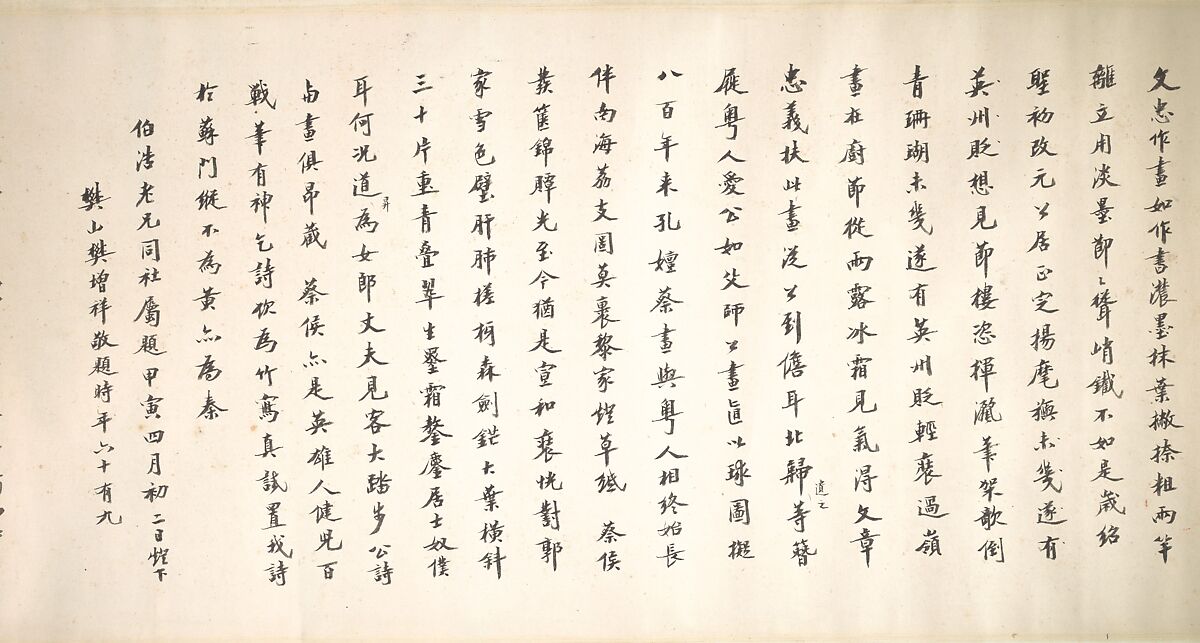 文忠作畫如作書濃墨抹葉撇捺粗兩竿
離立用淡墨節〻聳峭鐵不如是歲紹
聖初改元公居正定揚麾旟未幾遂有
英州貶想見節樓恣揮灑筆架欹倒
青珊瑚未幾遂有英州貶輕裘過嶺
畫在廚節從雨露冰霜見氣得文章
忠義扶此畫從公到儋耳北歸遺之等簪
屐粵人愛公如父師公畫直以球圖擬
八百年來孔嬗蔡畫與粵人相終始長
伴南海荔支圖莫裹黎家燈草紙 蔡侯
裝篋錦贉光至今猶是宣和裝恍對郭
家雪色壁肝肺槎枒森劍鋩大葉橫斜
三十片重青疊翠生鋻霜鏊鏖居士奴僕
耳何況道昇為女郎丈夫見客大踏步公詩
與畫俱昂藏 蔡侯亦是英雄人健兒百
戰筆有神乞詩欲為竹寫真試置我詩
於蘇門縱不為黃亦為秦
伯浩老兄同社屬題甲寅四月初二日燈下
樊山樊增祥敬題時年六十有九